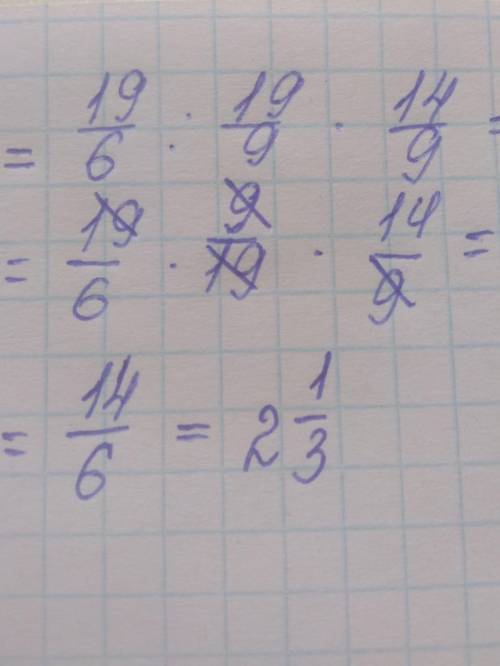 = 19/6 · 19/9 · 14/9 =
= 19/6 · 9/19 · 14/9 =
= 14/6 = 2 1/3